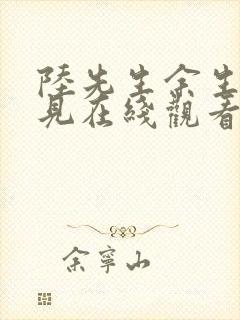 陸先生余生
見在綫觀看
余寧山